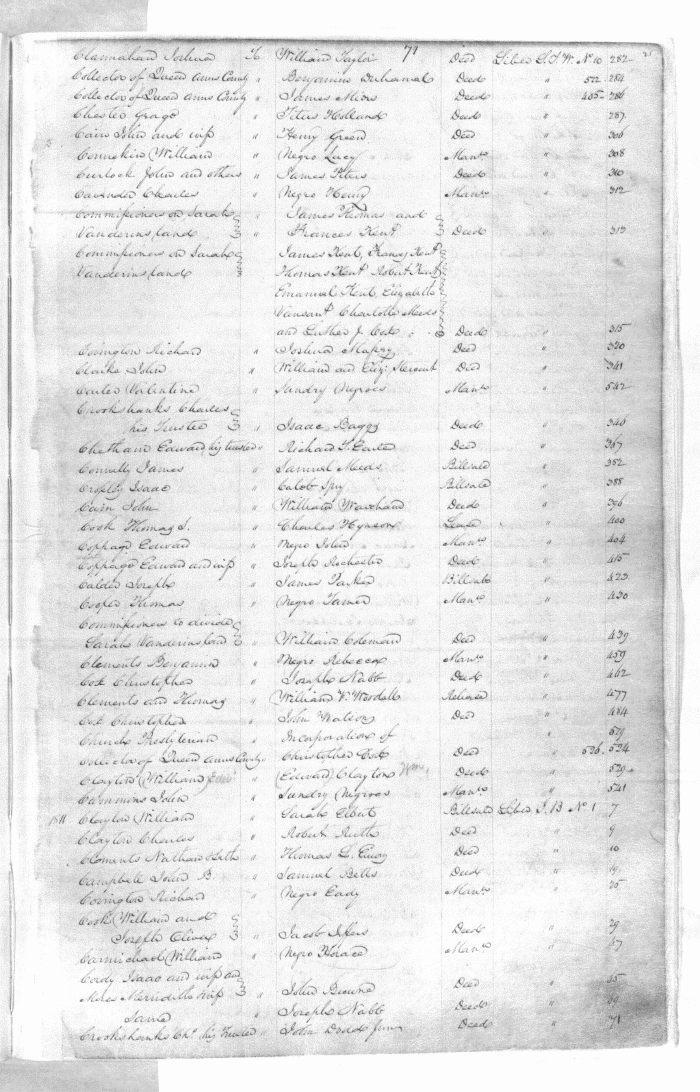 71
Clannahan Joshua To William Taylor Deed Liber S.T.W. No 10 282
Collector of Queen Anns County " Benjamin Deed " 522 - 284
Collector of Queen Anns County " James Deed " 405 - 286
Chester George " Peter Holland Deed " 287
Cain John and wife " Henry Green Deed " 306
William " Negro Lucy Mans " 308
Curlock John and others " James Peters Deed " 310
Cavender Charles " Negro Henry Mans " 312
Commissioners on Sarah James Thomas and
Vanderins land " Frances Kent Deed " 313
Commissioners on Sarah James Kent, Kent
Vanderins land Thomas Kent Robert Kent
Emanuel Kent, Elizabeth
Vansant Charlotte Meeds
and Luther J. Cox Deed " 315
Covington Richard " Joshua Deed " 320
Clarke John " William and Deed " 341
Carter Valentine " Sundry Negroes Mans " 342
Crookshanks Charles
his Trustee " Isaac Baggs Deed " 346
Cheatham Edward his trustee " Richard T. Earle Deed " 367
Connolly James " Samuel Meeds Billsale " 382
Cropley Isaac " Caleb Spry Billsale " 388
Cain John " William Deed " 396
Cook Thomas S. " Charles Hynson Lease " 400
Coppage Edward " Negro John Mans " 404
Coppage Edward and wife " Joseph Rochester Deed " 415
Calder Joseph " James Parker Billsale " 423
Cooper Thomas " Negro James Mans " 430
Commissioners to divide
Sarah Vanderins land " William Coleman Deed " 439
Clements Benjamin " Negro Rebecca Mans " 459
Cox Christopher " Joseph Nabb Deed " 462
Clements and Thomas " William W. Release " 477
Cox Christopher " John Watson Deed " 484
Church Presbyterian " Incorporation of " 519
Collector of Queen Anns County " Christopher Cox Deed " 526 - 524
Clayton (William) " (Edward) Clayton Wm Deed " 529
Cummons John " Sundry Negroes Mans " 541
Clayton William " Sarah Elbert Billsale Liber J.B No 1 7
Clayton Charles " Robert Ruth Deed " 9
Clements Nathan " Thomas L. Emory Deed " 10
Campbell John B. " Samuel Betts Deed " 19
Covington Richard " Negro Eady Mans " 25
Cook William and
Joseph Oliver " Jacob Deed " 29
Carmichael William " Negro Horace Mans " 37
Cady Isaac and wife and
wife " John Browne Deed " 55
Same " Joseph Nabb Deed "
Crookshanks Chs his Trustee " John Dodd Junr Deed " 71